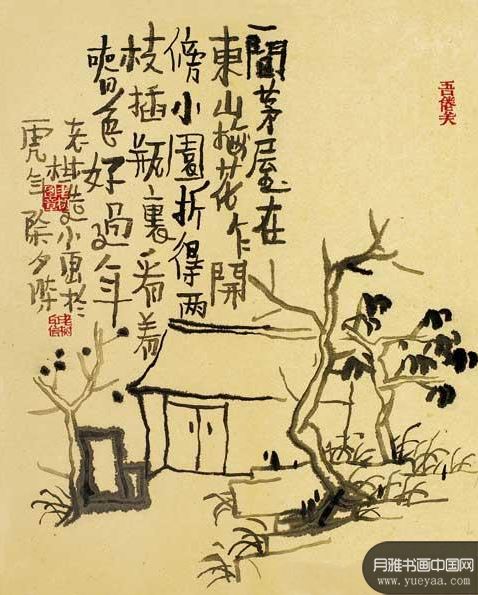 一間茅屋在
東山梅花乍開
傍小園折得兩
枝插瓶裏看着
色好過年
老樹造小画於
虎年除夕際
月雅书画中国网
www.yueyaa.com